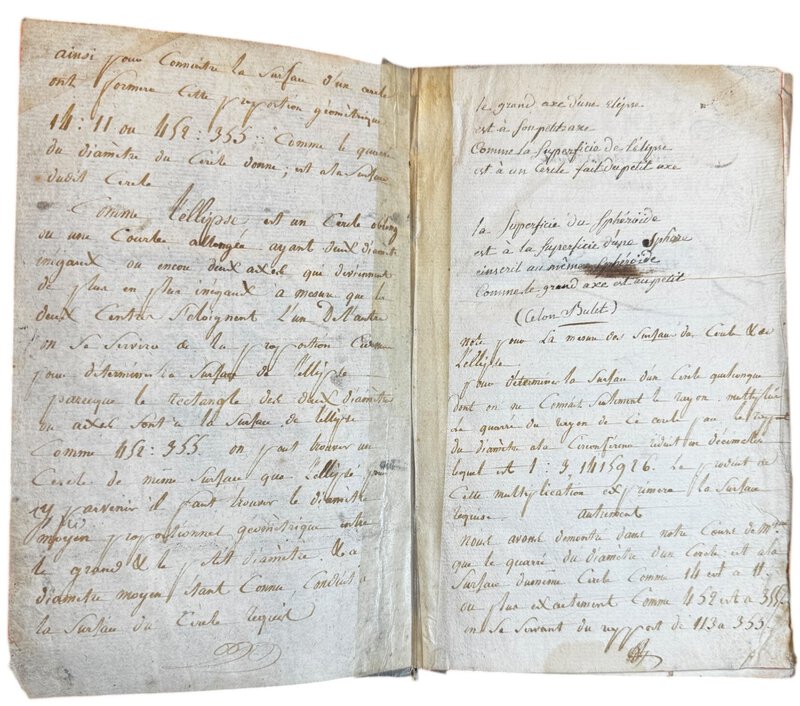 ainsi pour Connoitre la Surface d'un cercle
ont formera Cette proportion géometrique
14 : 11 ou 452 : 355 :: Comme le quarré
du diamètre du Cercle donné, est a la Surface
dudit Cercle
Comme l'ellypse est un Cercle oblong
ou une Courbe allongée ayant deux diamètres
inégaux ou encou deux axes qui deviennent
de plus en plus inégaux a mesure que les
deux Centres S'eloignent L'un De l'autre
on se Servira de la proportion Cidessus
pour déterminer la Surface de l'ellypse
parceque le rectangle des deux diamètres
ou axes sont a la Surface de l'ellipse
Comme 452 : 355 on peut trouver un
Cercle de même Surface que l'ellipse pour
y parvenir il faut trouver le diamètre
moyen proportionnel geométrique entre
le grand & le petit diamètre & le
diamètre moyen étant Connu, Conduit a
la Surface du Cercle requis
le grand axe d'une Elépse
est à son petit axe
Comme la Superficie de l'elipse
est à un Cercle fait du petit axe
la Superficie du Sphéroïde
est à la Superficie d'une Sphere
inscrit au même Sphéroïde
Comme le grand axe est au petit
(Celon Bulet)
note pour La mesure des Surfaces des Cercle & de
L'ellipse
pour déterminer la Surface d'un Cercle quelconque
dont on ne Connait Seulement le rayon multipliés
Le quarré du rayon de Ce cercle par le rapport
du diamètre a la Circonférence réduit en décimalles
lequel est 1 : 3,1415926. Le produit de
Cette multiplication exprimera la Surface
requise. autrement
nous avons demontré dans notre Cours de
que le quarré du diamètre d'un Cercle est a la
Surface du même Cercle Comme 14 est a 11
ou plus exactement Comme 452 est a 355
en se Servant du rapport de 113 a 355